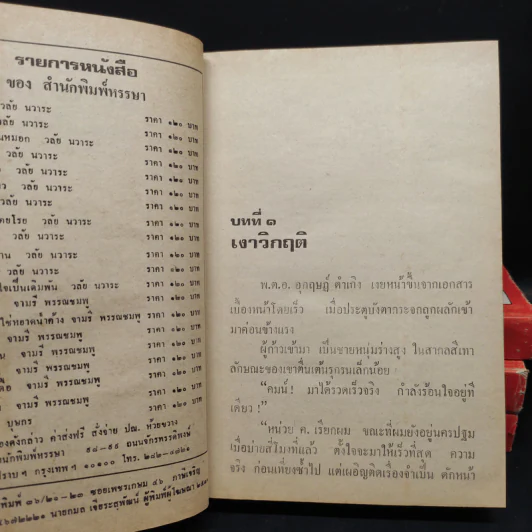 รายการหนังสือ
ของ สำนักพิมพ์หรรษา
วลัย นวาระ ราคา ๑๒๐ บาท
วลัย นวาระ ราคา ๑๒๐ บาท
นหมอก วลัย นวาระ ราคา ๑๒๐ บาท
วลัย นวาระ ราคา ๑๒๐ บาท
วลัย นวาระ ราคา ๑๒๐ บาท
วลัย นวาระ ราคา ๑๒๐ บาท
วลัย นวาระ ราคา ๑๒๐ บาท
วลัย นวาระ ราคา ๑๒๐ บาท
วลัย นวาระ ราคา ๑๒๐ บาท
าน วลัย นวาระ ราคา ๑๒๐ บาท
ใจเป็นเดิมพัน วลัย นวาระ ราคา ๑๒๐ บาท
จามรี พรรณชมพู ราคา ๑๒๐ บาท
จามรี พรรณชมพู ราคา ๑๒๐ บาท
จามรี พรรณชมพู ราคา ๑๒๐ บาท
จามรี พรรณชมพู ราคา ๑๒๐ บาท
จามรี พรรณชมพู ราคา ๑๒๐ บาท
จามรี พรรณชมพู ราคา ๑๒๐ บาท
บุษกร ราคา ๑๒๐ บาท
ค่าส่งฟรี สั่งจ่าย ปณ. ห้วยขวาง
นักพิมพ์หรรษา ๕๘-๕๙ ถนนจักรพรรดิพงษ์
กรุงเทพฯ ๑๐๑๐๐ โทร.
ซอยเพชรเกษม ๔๖ ภาษีเจริญ
บทที่ ๑
เงาวิกฤติ
พ.ต.อ. อุกฤษฎ์ ดำเกิง เงยหน้าขึ้นจากเอกสาร
เบื้องหน้าโดยเร็ว เมื่อประตูบังตากระจกถูกผลักเข้า
มาค่อนข้างแรง
ผู้ก้าวเข้ามา เป็นชายหนุ่มร่างสูง ในสากลสีเทา
ลักษณะของเขาตื่นเต้นรุกรนเล็กน้อย
“คมน์! มาได้รวดเร็วจริง กำลังร้อนใจอยู่ที
เดียว!”
“หน่วย ค. เรียกผม ขณะที่ผมยังอยู่นครปฐม
เมื่อบ่ายสี่โมงที่แล้ว ตั้งใจจะมาให้เร็วที่สุด ความ
จริง ก่อนเที่ยงซ้ำไป แต่เผอิญติดเรื่องจำเป็น ดักหน้า